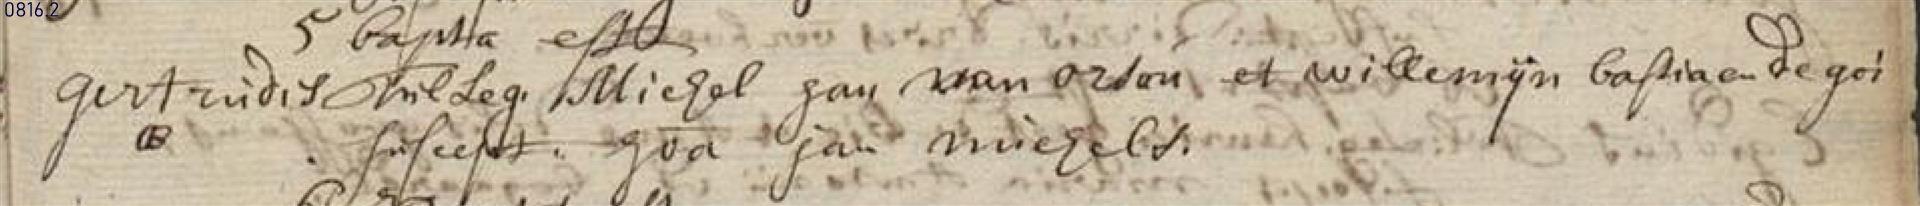 0816.2
5 baptta est
gertrudis fil Leg. Michel jan van orson et willemijn bastiaen de goi
suscept. jan michels.